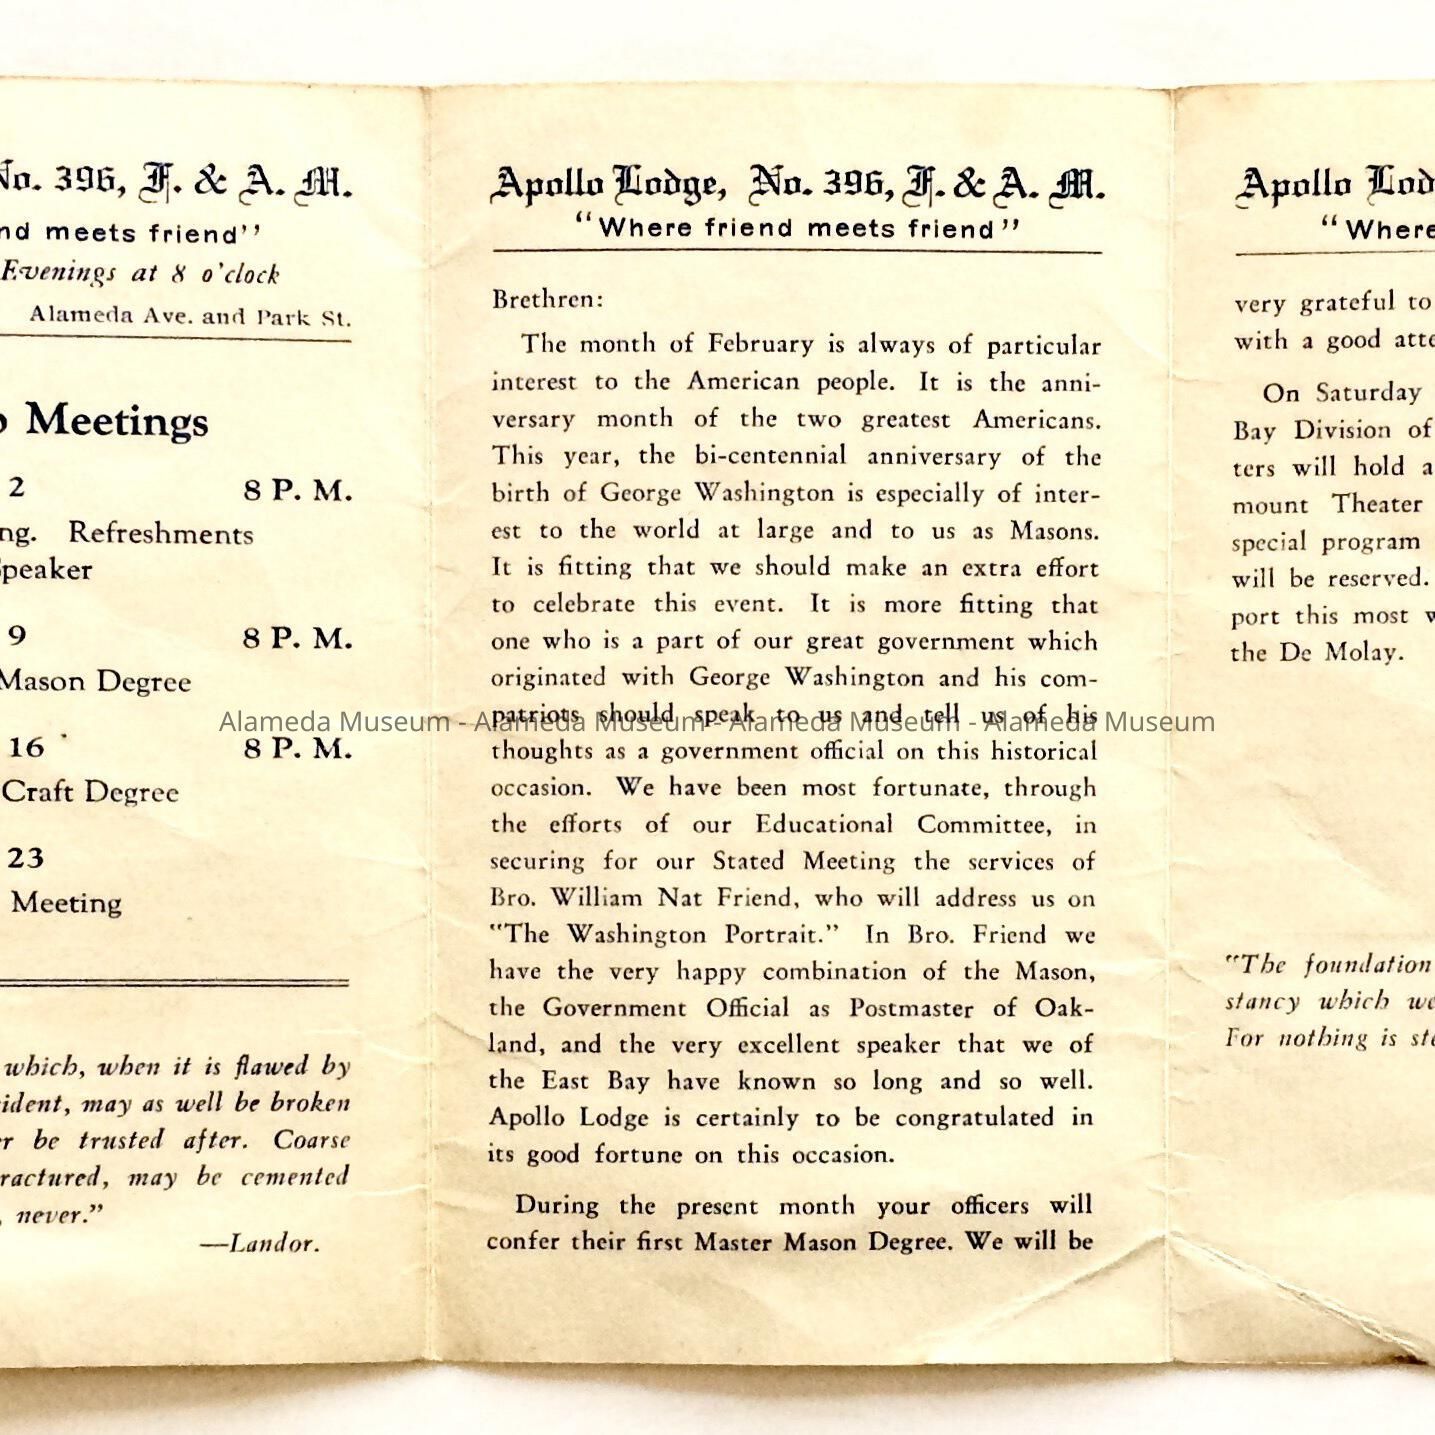 No. 396, F. & A. M.
meets friend"
Evenings at 8 o'clock
Alameda Ave. and Park St.
Meetings
2 8 P. M.
Refreshments
Speaker
9 8 P. M.
Mason Degree
16 8 P. M.
Craft Degree
23
Meeting
which, when it is flawed by
may as well be broken
be trusted after. Coarse
may be cemented
never."
—Landor.
Apollo Lodge, No. 396, F. & A. M.
"Where friend meets friend"
Brethren:
The month of February is always of particular
interest to the American people. It is the anni-
versary month of the two greatest Americans.
This year, the bi-centennial anniversary of the
birth of George Washington is especially of inter-
est to the world at large and to us as Masons.
It is fitting that we should make an extra effort
to celebrate this event. It is more fitting that
one who is a part of our great government which
originated with George Washington and his com-
patriots should speak to us and tell us of his
thoughts as a government official on this historical
occasion. We have been most fortunate, through
the efforts of our Educational Committee, in
securing for our Stated Meeting the services of
Bro. William Nat Friend, who will address us on
"The Washington Portrait." In Bro. Friend we
have the very happy combination of the Mason,
the Government Official as Postmaster of Oak-
land, and the very excellent speaker that we of
the East Bay have known so long and so well.
Apollo Lodge is certainly to be congratulated in
its good fortune on this occasion.
During the present month your officers will
confer their first Master Mason Degree. We will be
Apollo
"Where
very grateful to
with a good
On Saturday
Bay Division of
ters will hold a
mount Theater
special program
will be reserved.
port this most
the De Molay.
"The foundation
stancy which
For nothing is
Alameda Museum - Alameda Museum - Alameda Museum - Alameda Museum